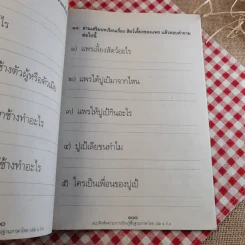 อ่านเสริมบทเรียนเรื่อง สัตว์เลี้ยงของแพร แล้วตอบคำถาม
ต่อไปนี้
๑) แพรเลี้ยงสัตว์อะไร
๒) แพรได้ปูเป้มาจากไหน
๓) แพรให้ปูเป้กินอะไร
๔) ปูเป้เลียขนทำไม
๕) ใครเป็นเพื่อนของปูเป้
ช้างตัวผู้หรือตัวเมีย
ช้างทำอะไร
ช้างทำอะไร